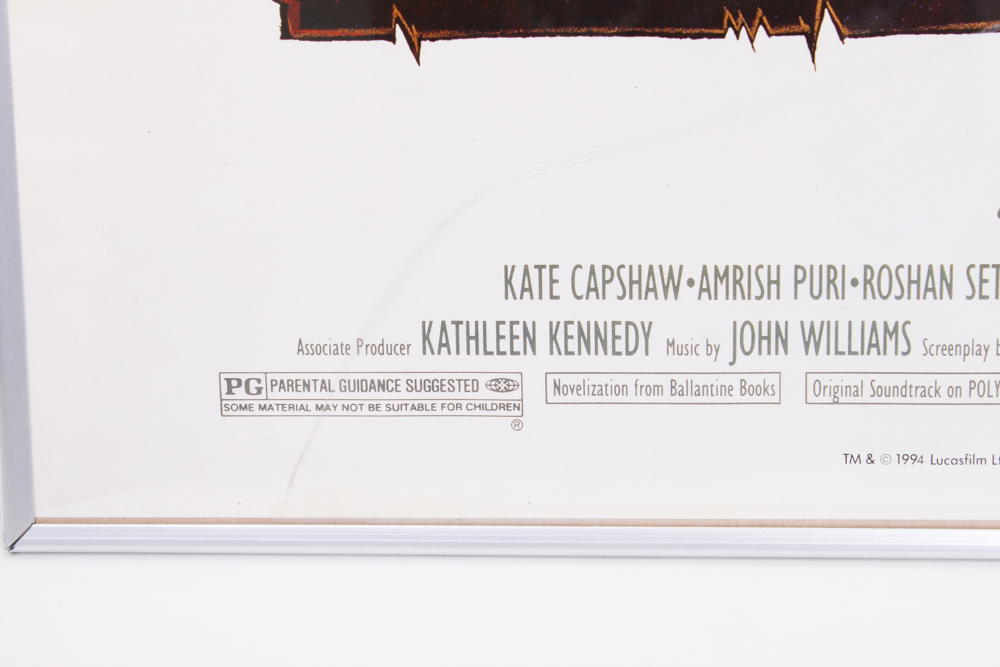 KATE CAPSHAW•AMRISH PURI•ROSHAN SET
Associate Producer KATHLEEN KENNEDY Music by JOHN WILLIAMS Screenplay b
PG PARENTAL GUIDANCE SUGGESTED
SOME MATERIAL MAY NOT BE SUITABLE FOR CHILDREN
®
Novelization from Ballantine Books
Original Soundtrack on POLY
TM & © 1994 Lucasfilm Lt